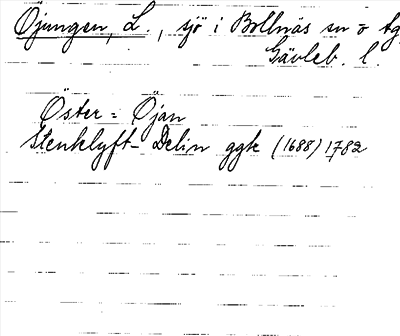 Öjungen, L., sjö i Bollnäs sn o tg,
Gävleb. l.
Öster = Öjan
Stenklyft- Delin ggk (1688) 1782